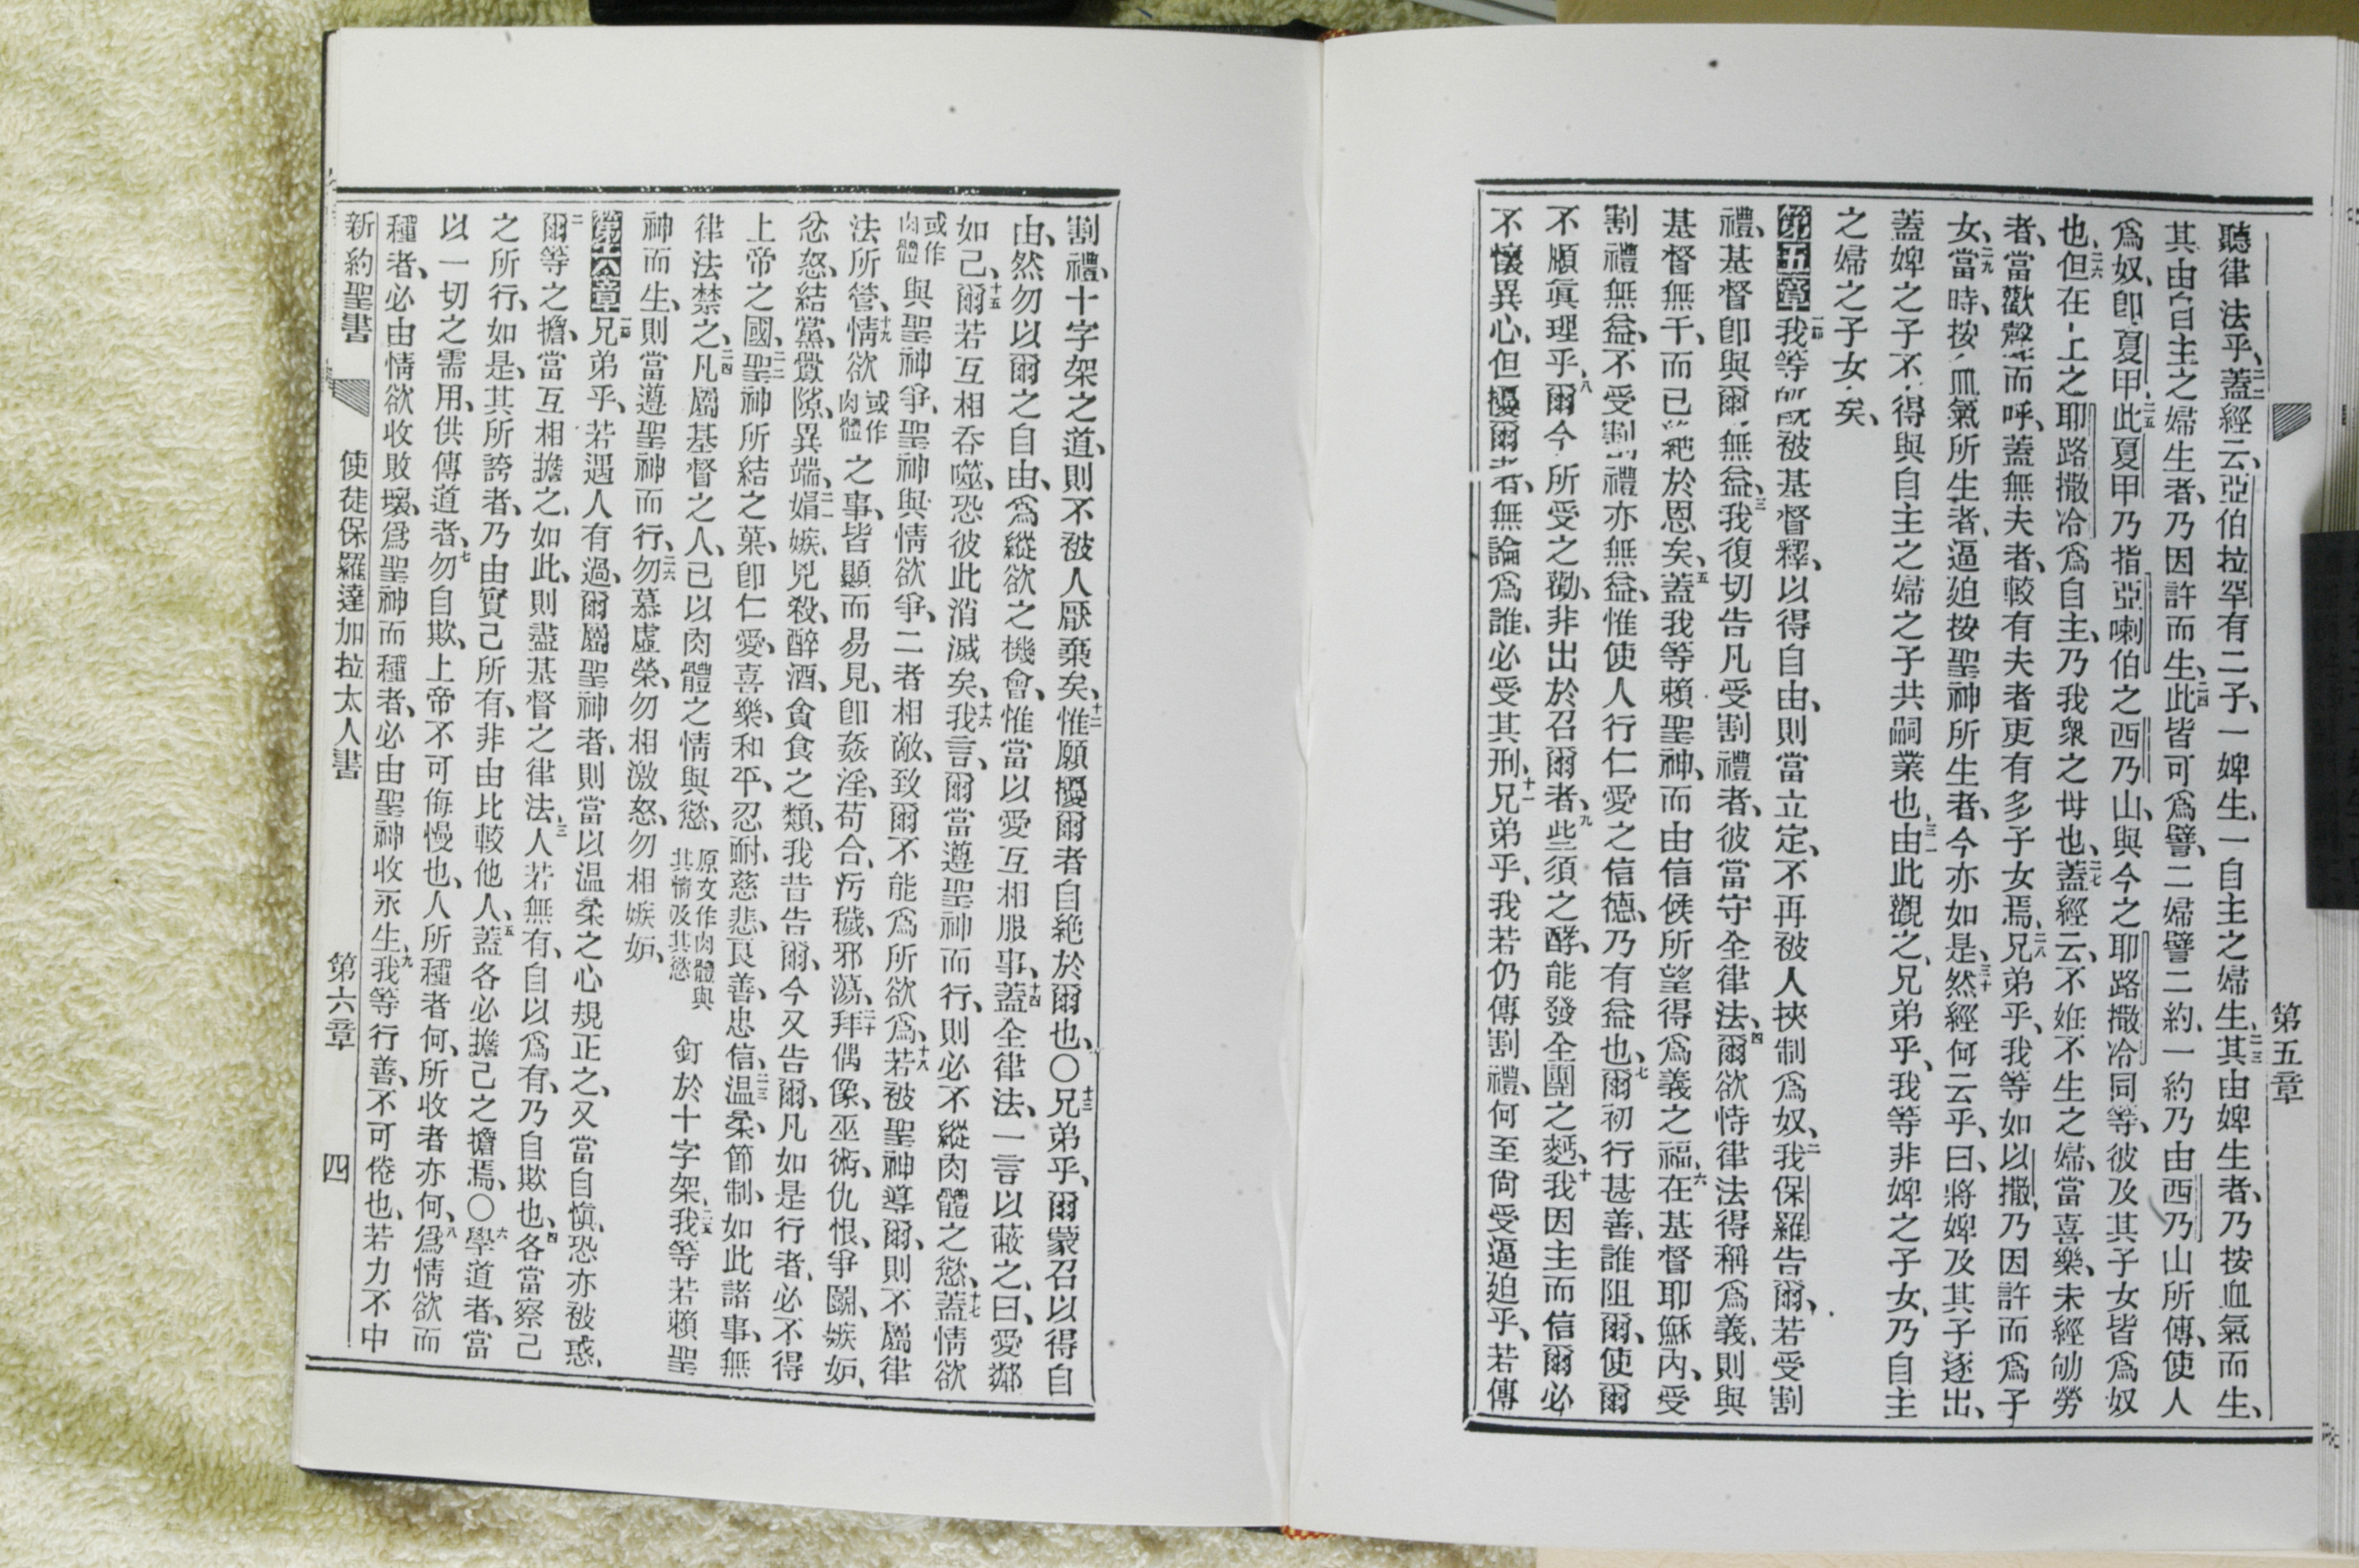 第五章
聽律法乎、二二蓋經云、亞伯拉罕有二子、一婢生、一自主之婦生、二三其由婢生者、乃按血氣而生、
其由自主之婦生者、乃因許而生、二四此皆可爲譬、二婦譬二約、一約乃由西乃山所傳、使人
爲奴、卽夏甲、二五此夏甲乃指亞喇伯之西乃山、與今之耶路撒冷同等、彼及其子女皆爲奴
也、二六但在上之耶路撒冷爲自主、乃我衆之母也、二七蓋經云、不姙不生之婦、當喜樂、未經劬勞
者、當歡聲而呼、蓋無夫者、較有夫者更有多子女焉、二八兄弟乎、我等如以撒、乃因許而爲子
女、二九當時、按血氣所生者、逼迫按聖神所生者、今亦如是、三十然經何云乎、曰、將婢及其子逐出、
蓋婢之子不得與自主之婦之子共嗣業也、三一由此觀之、兄弟乎、我等非婢之子女、乃自主
之婦之子女矣、
第五章一節我等旣被基督釋、以得自由、則當立定、不再被人挾制爲奴、二我保羅告爾、若受割
禮、基督卽與爾無益、三我復切告凡受割禮者、彼當守全律法、四爾欲恃律法得稱爲義、則與
基督無干、而已絕於恩矣、五蓋我等賴聖神、而由信候所望得爲義之福、六在基督耶穌內、受
割禮無益、不受割禮亦無益、惟使人行仁愛之信德、乃有益也、七爾初行甚善、誰阻爾、使爾
不順眞理乎、八爾今所受之勸、非出於召爾者、九些須之酵、能發全團之麪、十我因主而信爾必
不懷異心、但擾爾者、無論爲誰、必受其刑、十一兄弟乎、我若仍傳割禮、何至尙受逼迫乎、若傳
割禮、十字架之道、則不被人厭棄矣、十二惟願擾爾者自絕於爾也、〇十三兄弟乎、爾蒙召以得自
由、然勿以爾之自由、爲縱欲之機會、惟當以愛互相服事、十四蓋全律法、一言以蔽之、曰、愛鄰
如己、十五爾若互相吞噬、恐彼此消滅矣、十六我言、爾當遵聖神而行、則必不縱肉體之慾、十七蓋情欲
或作肉體與聖神爭、聖神與情欲爭、二者相敵、致爾不能爲所欲爲、十八若被聖神導爾、則不屬律
法所管、十九情欲或作肉體之事、皆顯而易見、卽姦淫、苟合、污穢、邪蕩、二十拜偶像、巫術、仇恨、爭鬬、嫉妬、
忿怒、結黨、釁隙、異端、二一娟嫉、兇殺、醉酒、貪食之類、我昔告爾、今又告爾、凡如是行者、必不得
上帝之國、二二聖神所結之菓、卽仁愛、喜樂、和平、忍耐、慈悲、良善、忠信、二三温柔、節制、如此諸事、無
律法禁之、二四凡屬基督之人、已以肉體之情與慾、原文作肉體與其情及其慾釘於十字架、二五我等若賴聖
神而生、則當遵聖神而行、二六勿慕虛榮、勿相激怒、勿相嫉妬、
第六章一節兄弟乎、若遇人有過、爾屬聖神者、則當以温柔之心規正之、又當自愼、恐亦被惑、
二爾等之擔、當互相擔之、如此、則盡基督之律法、三人若無有、自以爲有、乃自欺也、四各當察己
之所行、如是、其所誇者、乃由實己所有、非由比較他人、五蓋各必擔己之擔焉、〇六學道者、當
以一切之需用、供傳道者、七勿自欺、上帝不可侮慢也、人所種者何、所收者亦何、八爲情欲而
種者、必由情欲收敗壞、爲聖神而種者、必由聖神收永生、九我等行善、不可倦也、若力不中
新約聖書 使徒保羅達加拉太人書 第六章 四